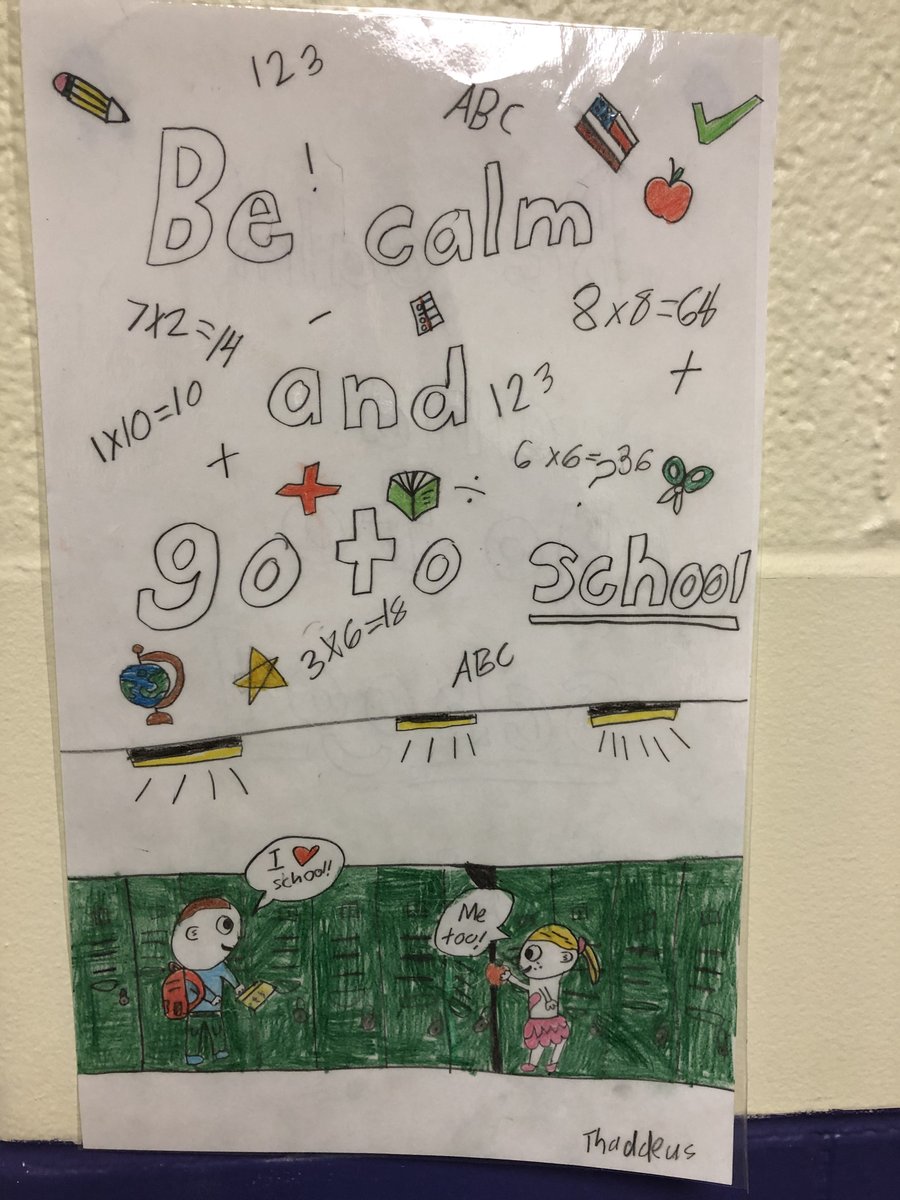 123
ABC
Be ! calm
7x2=14
8x8=64
1x10=10
and 123
+
+
6x6=36
÷
go to school
3x6=18
ABC
I ♥
school!
Me
too!
Thaddeus